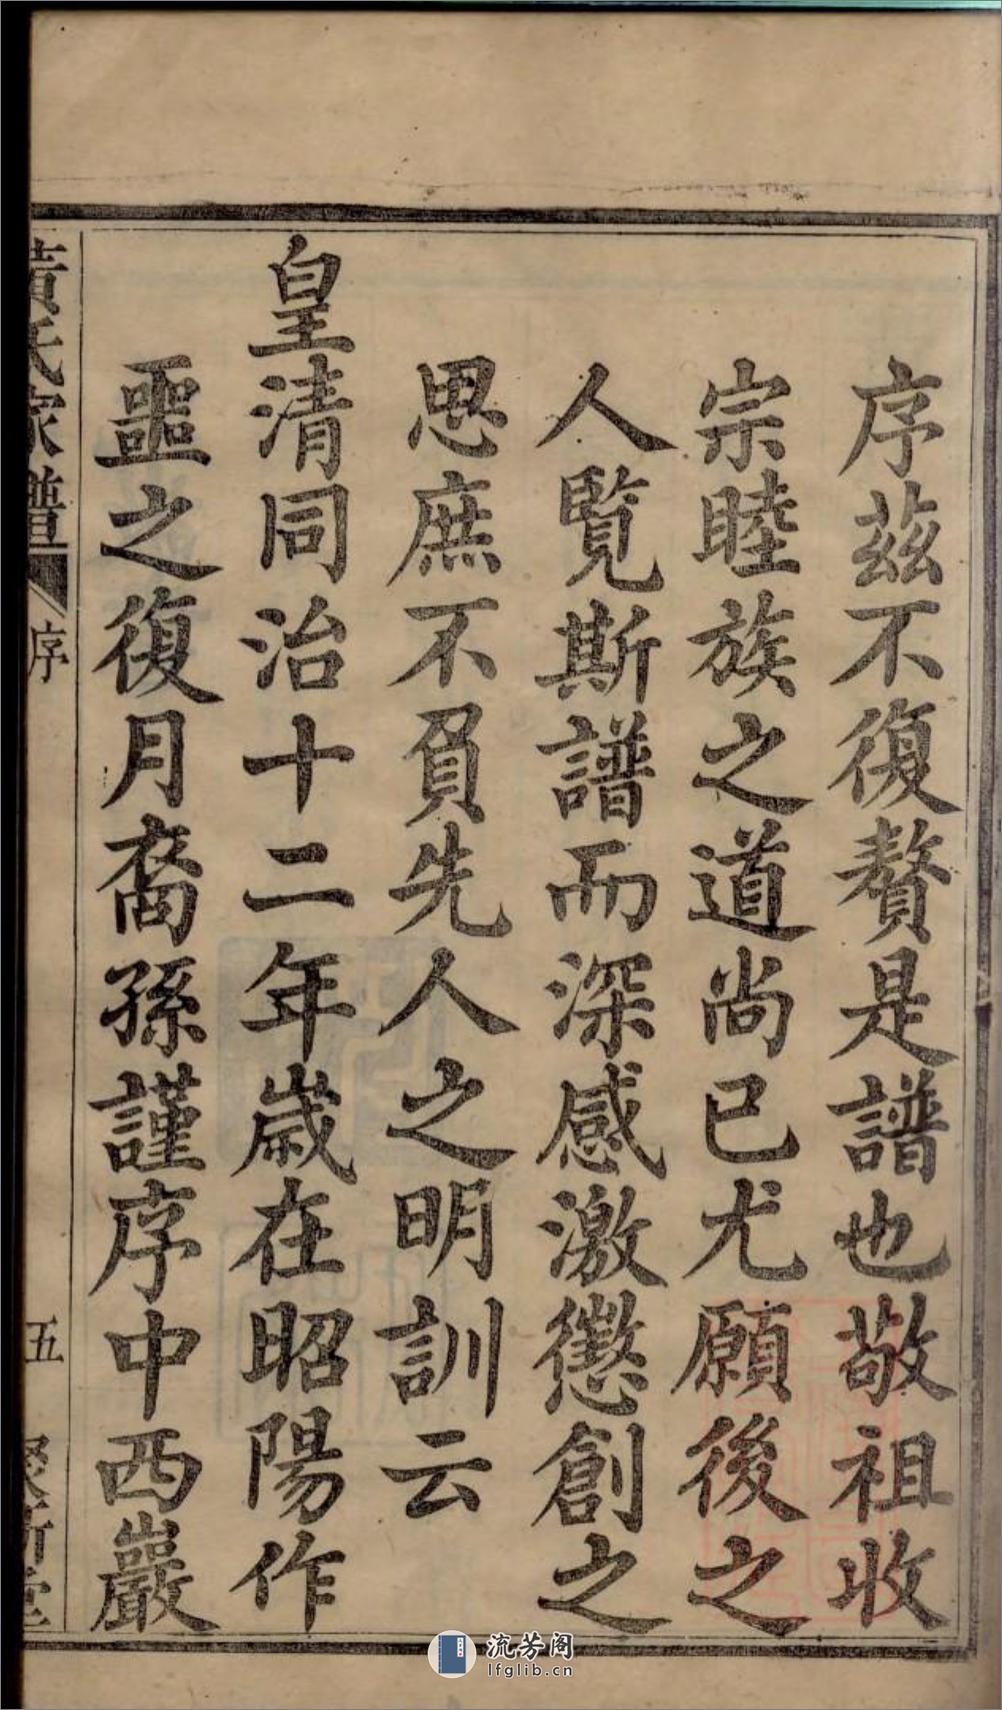 序茲不復贅是譜也敬祖收
宗睦族之道尚已尤願後之
人覽斯譜而深感激懲創之
思庶不負先人之明訓云
皇清同治十二年歲在昭陽作
噩之復月裔孫謹序中西巖
黃氏家譜
序
五
流芳阁
lfglib.cn